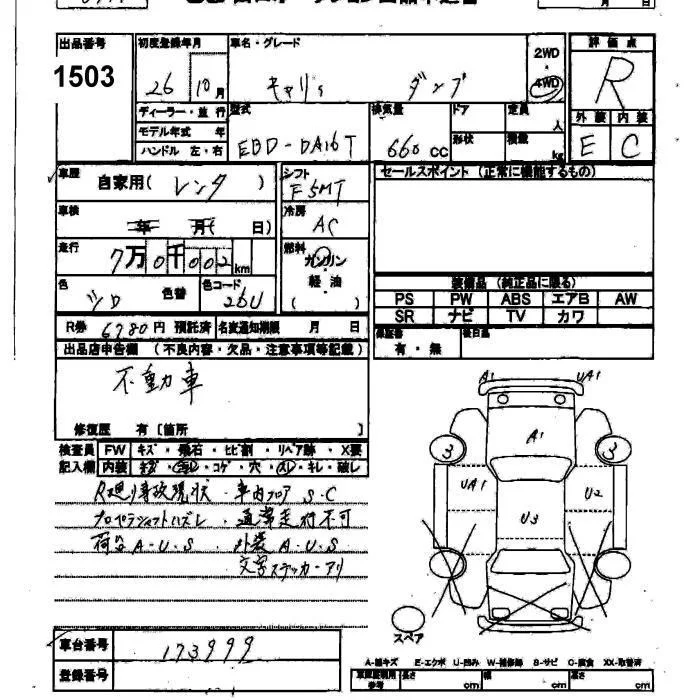 月 日
出品番号 初度登録年月 車名・グレード 2WD ・ 4WD 評価点
1503 26 10月 キャリィ ダンプ R
ディーラー・並行 型式 排気量 ドア 定員 外装 内装
モデル年式 年 EBD-DA16T 660 CC 形状 人 積載 E C
ハンドル 左・右 kg
車歴 自家用( レンタ ) シフト F5MT セールスポイント (正常に機能するもの)
車検 年 月( 日) 冷房 AC
走行 7万0千002km 燃料 ガソリン
軽油
( )
色 シロ 色替 色コード 26U
装備品 (純正品に限る)
PS PW ABS エアB AW
SR ナビ TV カワ
R券 6780円 預託済 名変通知期限 月 日
保証書 有・無 後日品
出品店申告欄 (不良内容・欠品・注意事項等記載)
不動車
修復歴 有 [箇所 ]
検査員 FW キズ・飛石・ヒビ割・リペア跡・X要
記入欄 内装 キズ・ヨゴレ・コゲ・穴・スレ・キレ・破レ
現状・車内フロア S.C
プロペラシャフトハズレ・通常走行不可
荷台 A・U・S. 外装 A・U・S
文字ステッカーアリ
A1 UA1
A1
3 3
UA1 U2
U3
スペア
車台番号 173999
登録番号
A-線キズ E-エクボ U-凹み W-補修跡 S-サビ C-腐食 XX-取替済
車庫証明用参考 長さ cm 幅 cm 高さ cm